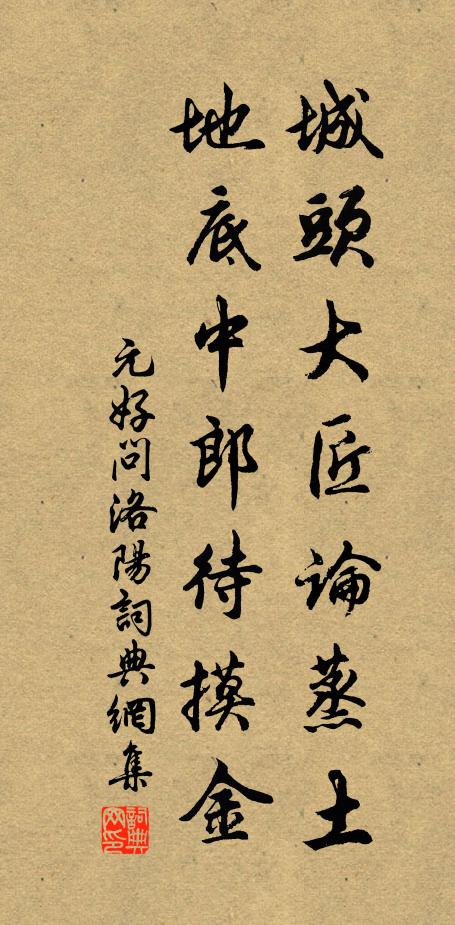 城頭大匠論蒸土
地底中郎待摸金
元好問洛陽詞典網集
詞典网印